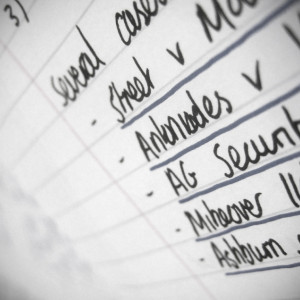 3)
Several cases
- Street v
- Antoniades v
- AG Securit
- Mikeover
- Ashburn